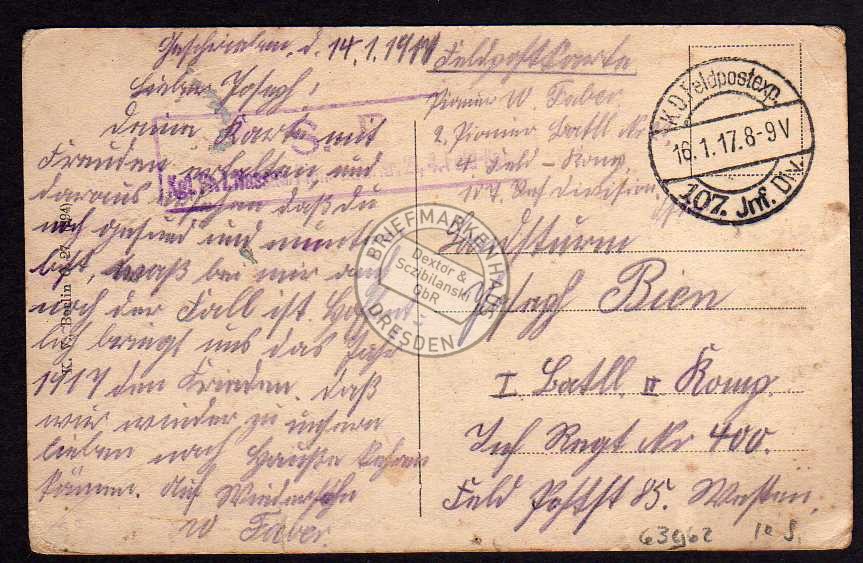 Geschrieben, d. 14.1.1917
Lieber Joseph!
Deine Karte mit
Freuden erhalten, und
daraus ersehen daß du
noch gesund und munter
bist, waß bei mir auch
noch der Fall ist. Hoffent
lich bringt uns das Jahr
1917 den Frieden. daß
wir wieder zu unsern
lieben nach Hauße kehren
können. Auf Wiedersehn
W Faber.
K. V. Berlin
Feldpostkarte
Pionier W. Faber
2. Pionier Batll Nr
4. Feld-Komp.
107. Inf Division
Landsturm
Joseph Bien
I Batll. II Komp.
Inf Regt Nr 400.
Feld Postst 85. Westen
K.D. Feldpostexp.
16.1.17.8-9V
107. Inf. Div.
S.
BRIEFMARKENHAUS
Dextor &
Sczibilanski
GbR
DRESDEN
63962